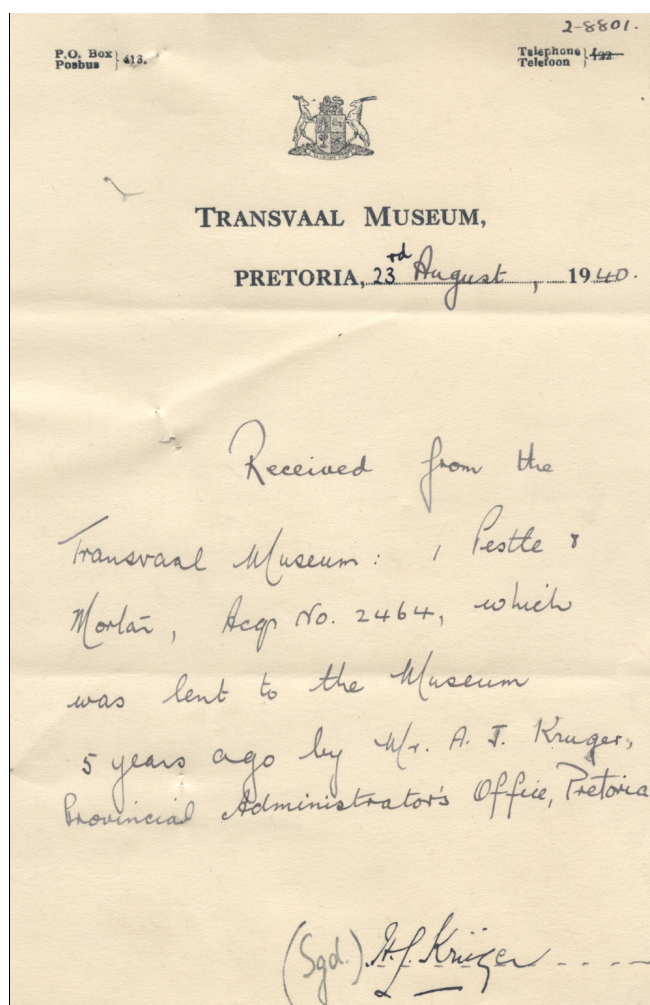 2-8801.
P.O. Box } 413.
Posbus
Telephone }
Telefoon
TRANSVAAL MUSEUM,
PRETORIA, 23rd August, 1940.
Received from the
Transvaal Museum: 1 Pestle &
Mortar, Acqs No. 2464, which
was lent to the Museum
5 years ago by Mr. A. J. Kruger,
Provincial Administrator's Office, Pretoria
(Sgd.) A.J. Krüger